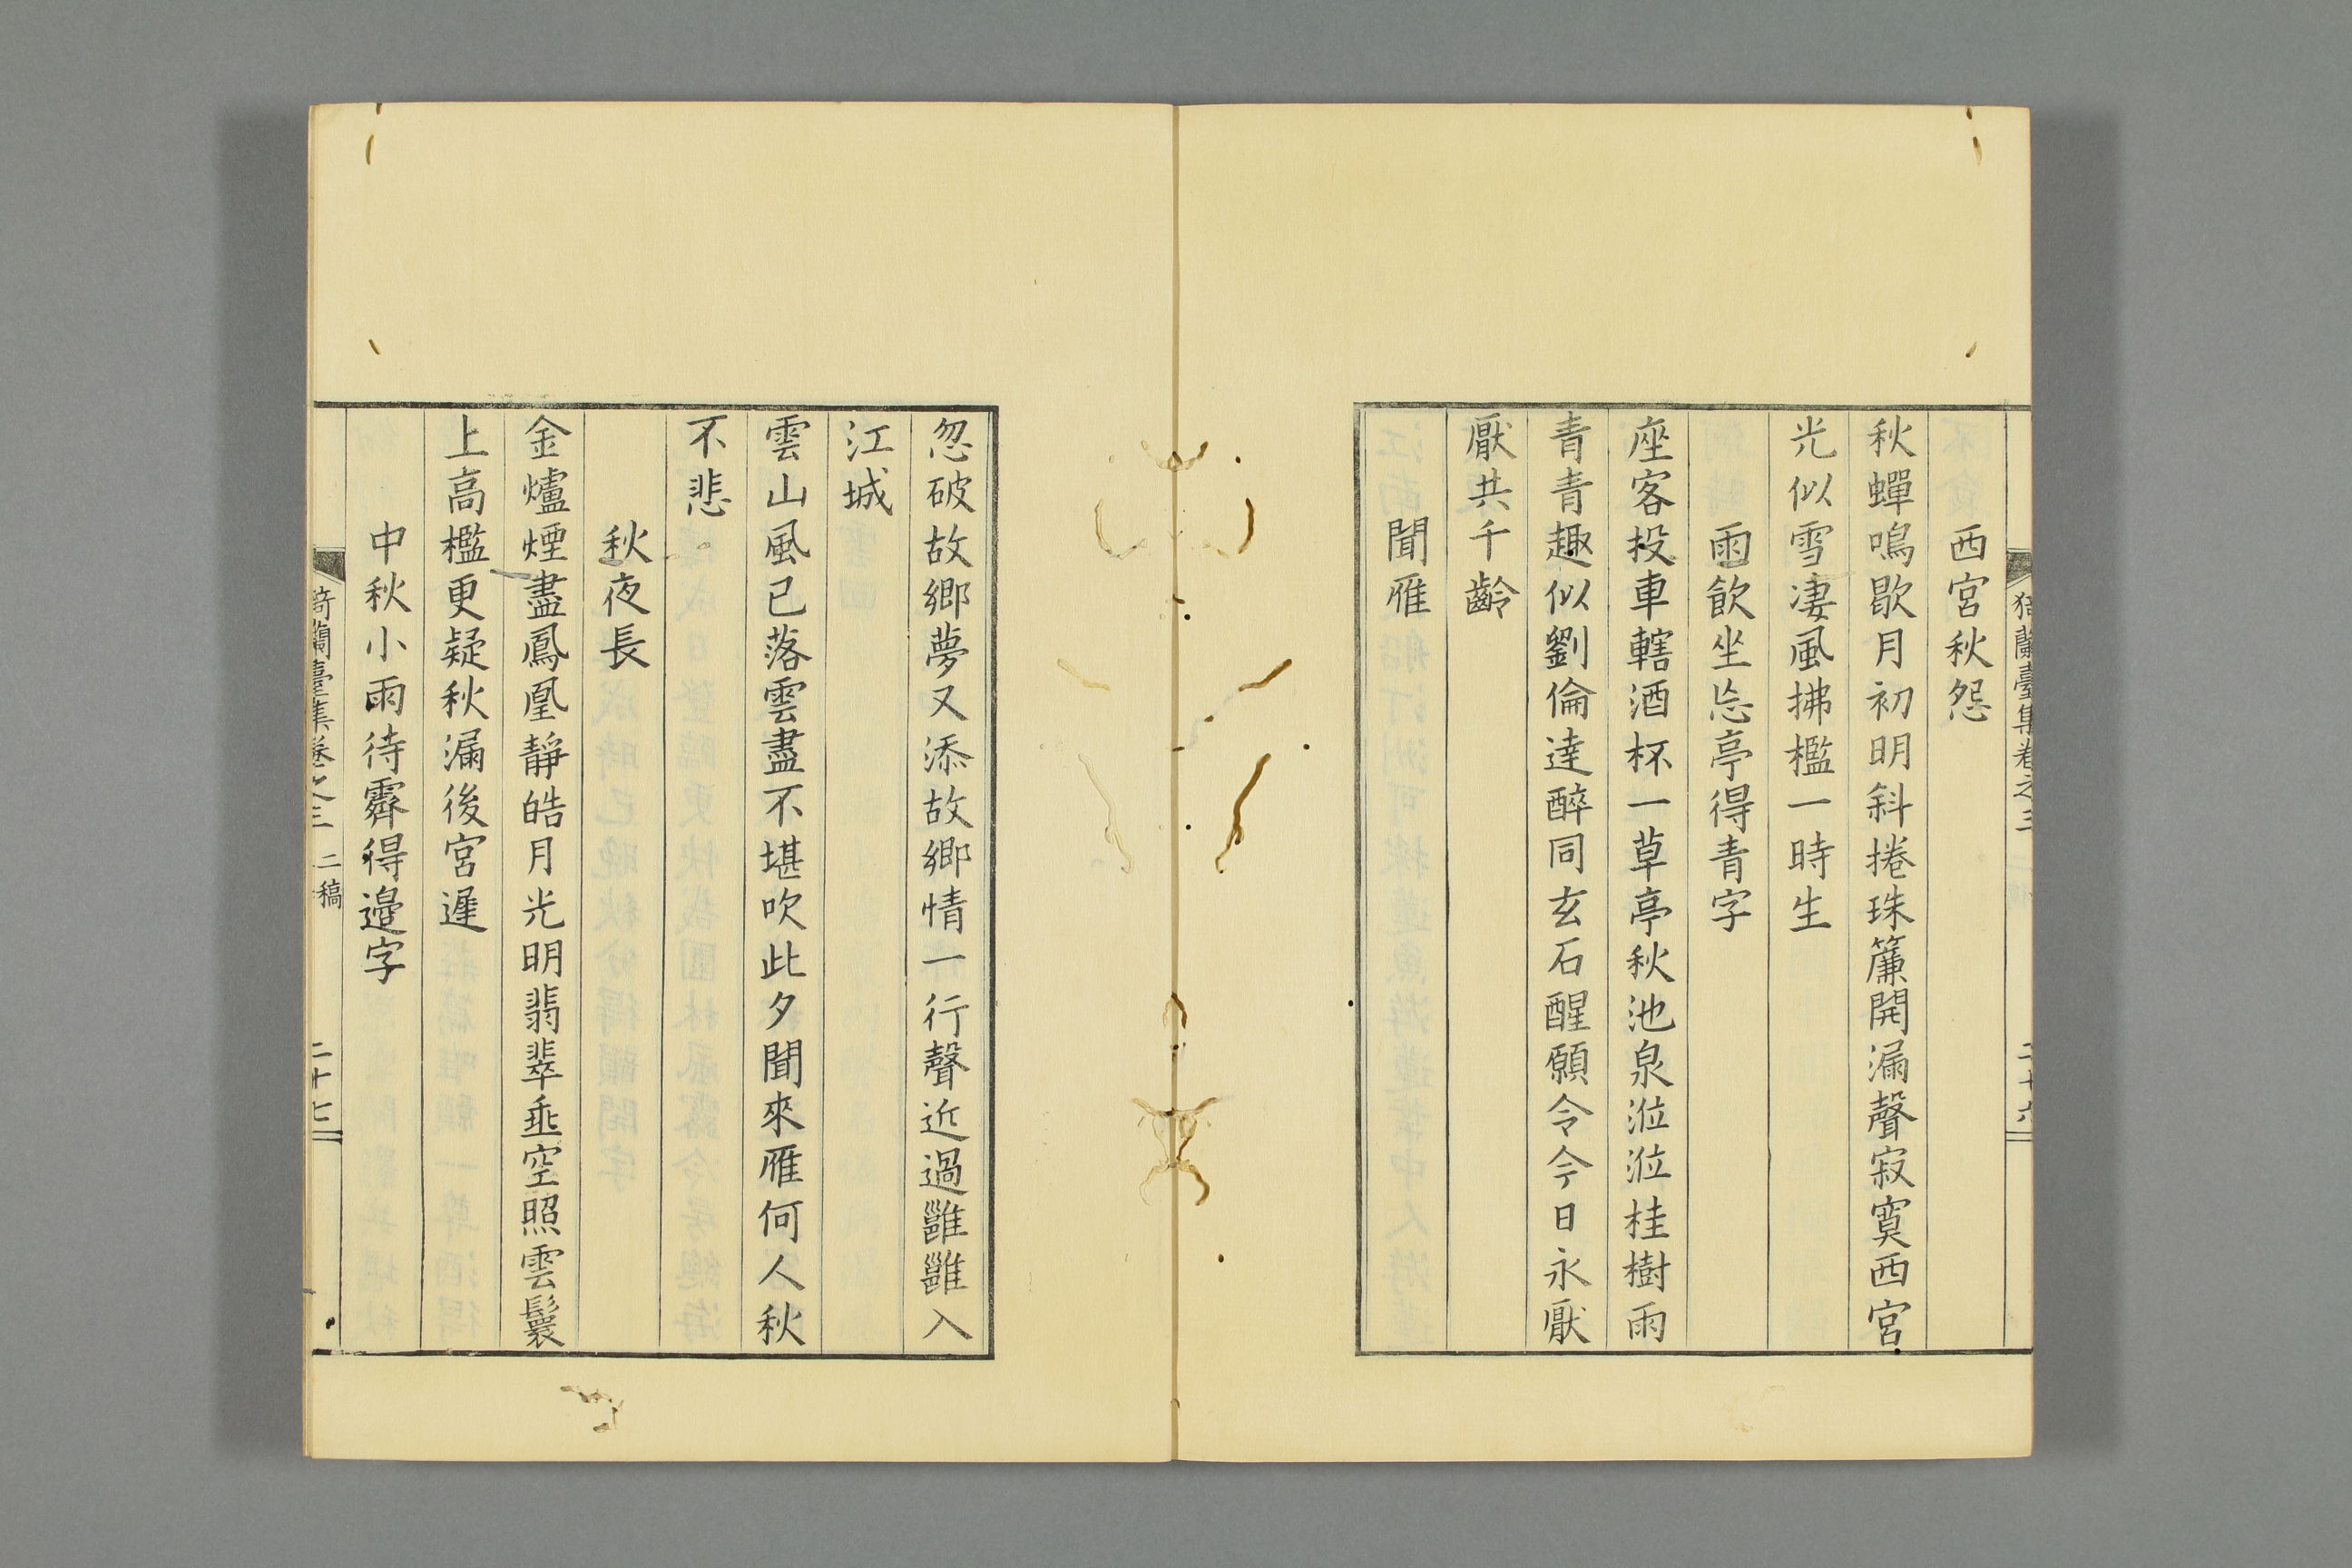 西宮秋怨
秋蟬鳴歇月初明斜捲珠簾開漏聲寂寞西宮
光似雪凄風拂檻一時生
雨飲坐忘亭得青字
座客投車轄酒杯一草亭秋池泉涖涖桂樹雨
青青趣似劉倫達醉同玄石醒願令今日永厭
厭共千齡
聞雁
忽破故鄉夢又添故鄉情一行聲近過雝雝入
江城
雲山風已落雲盡不堪吹此夕聞來雁何人秋
不悲
秋夜長
金爐煙盡鳳凰靜皓月光明翡翠垂空照雲鬟
上高檻更疑秋漏後宮遲
中秋小雨待霽得邊字
蘭臺集卷之三 二稿 二十七